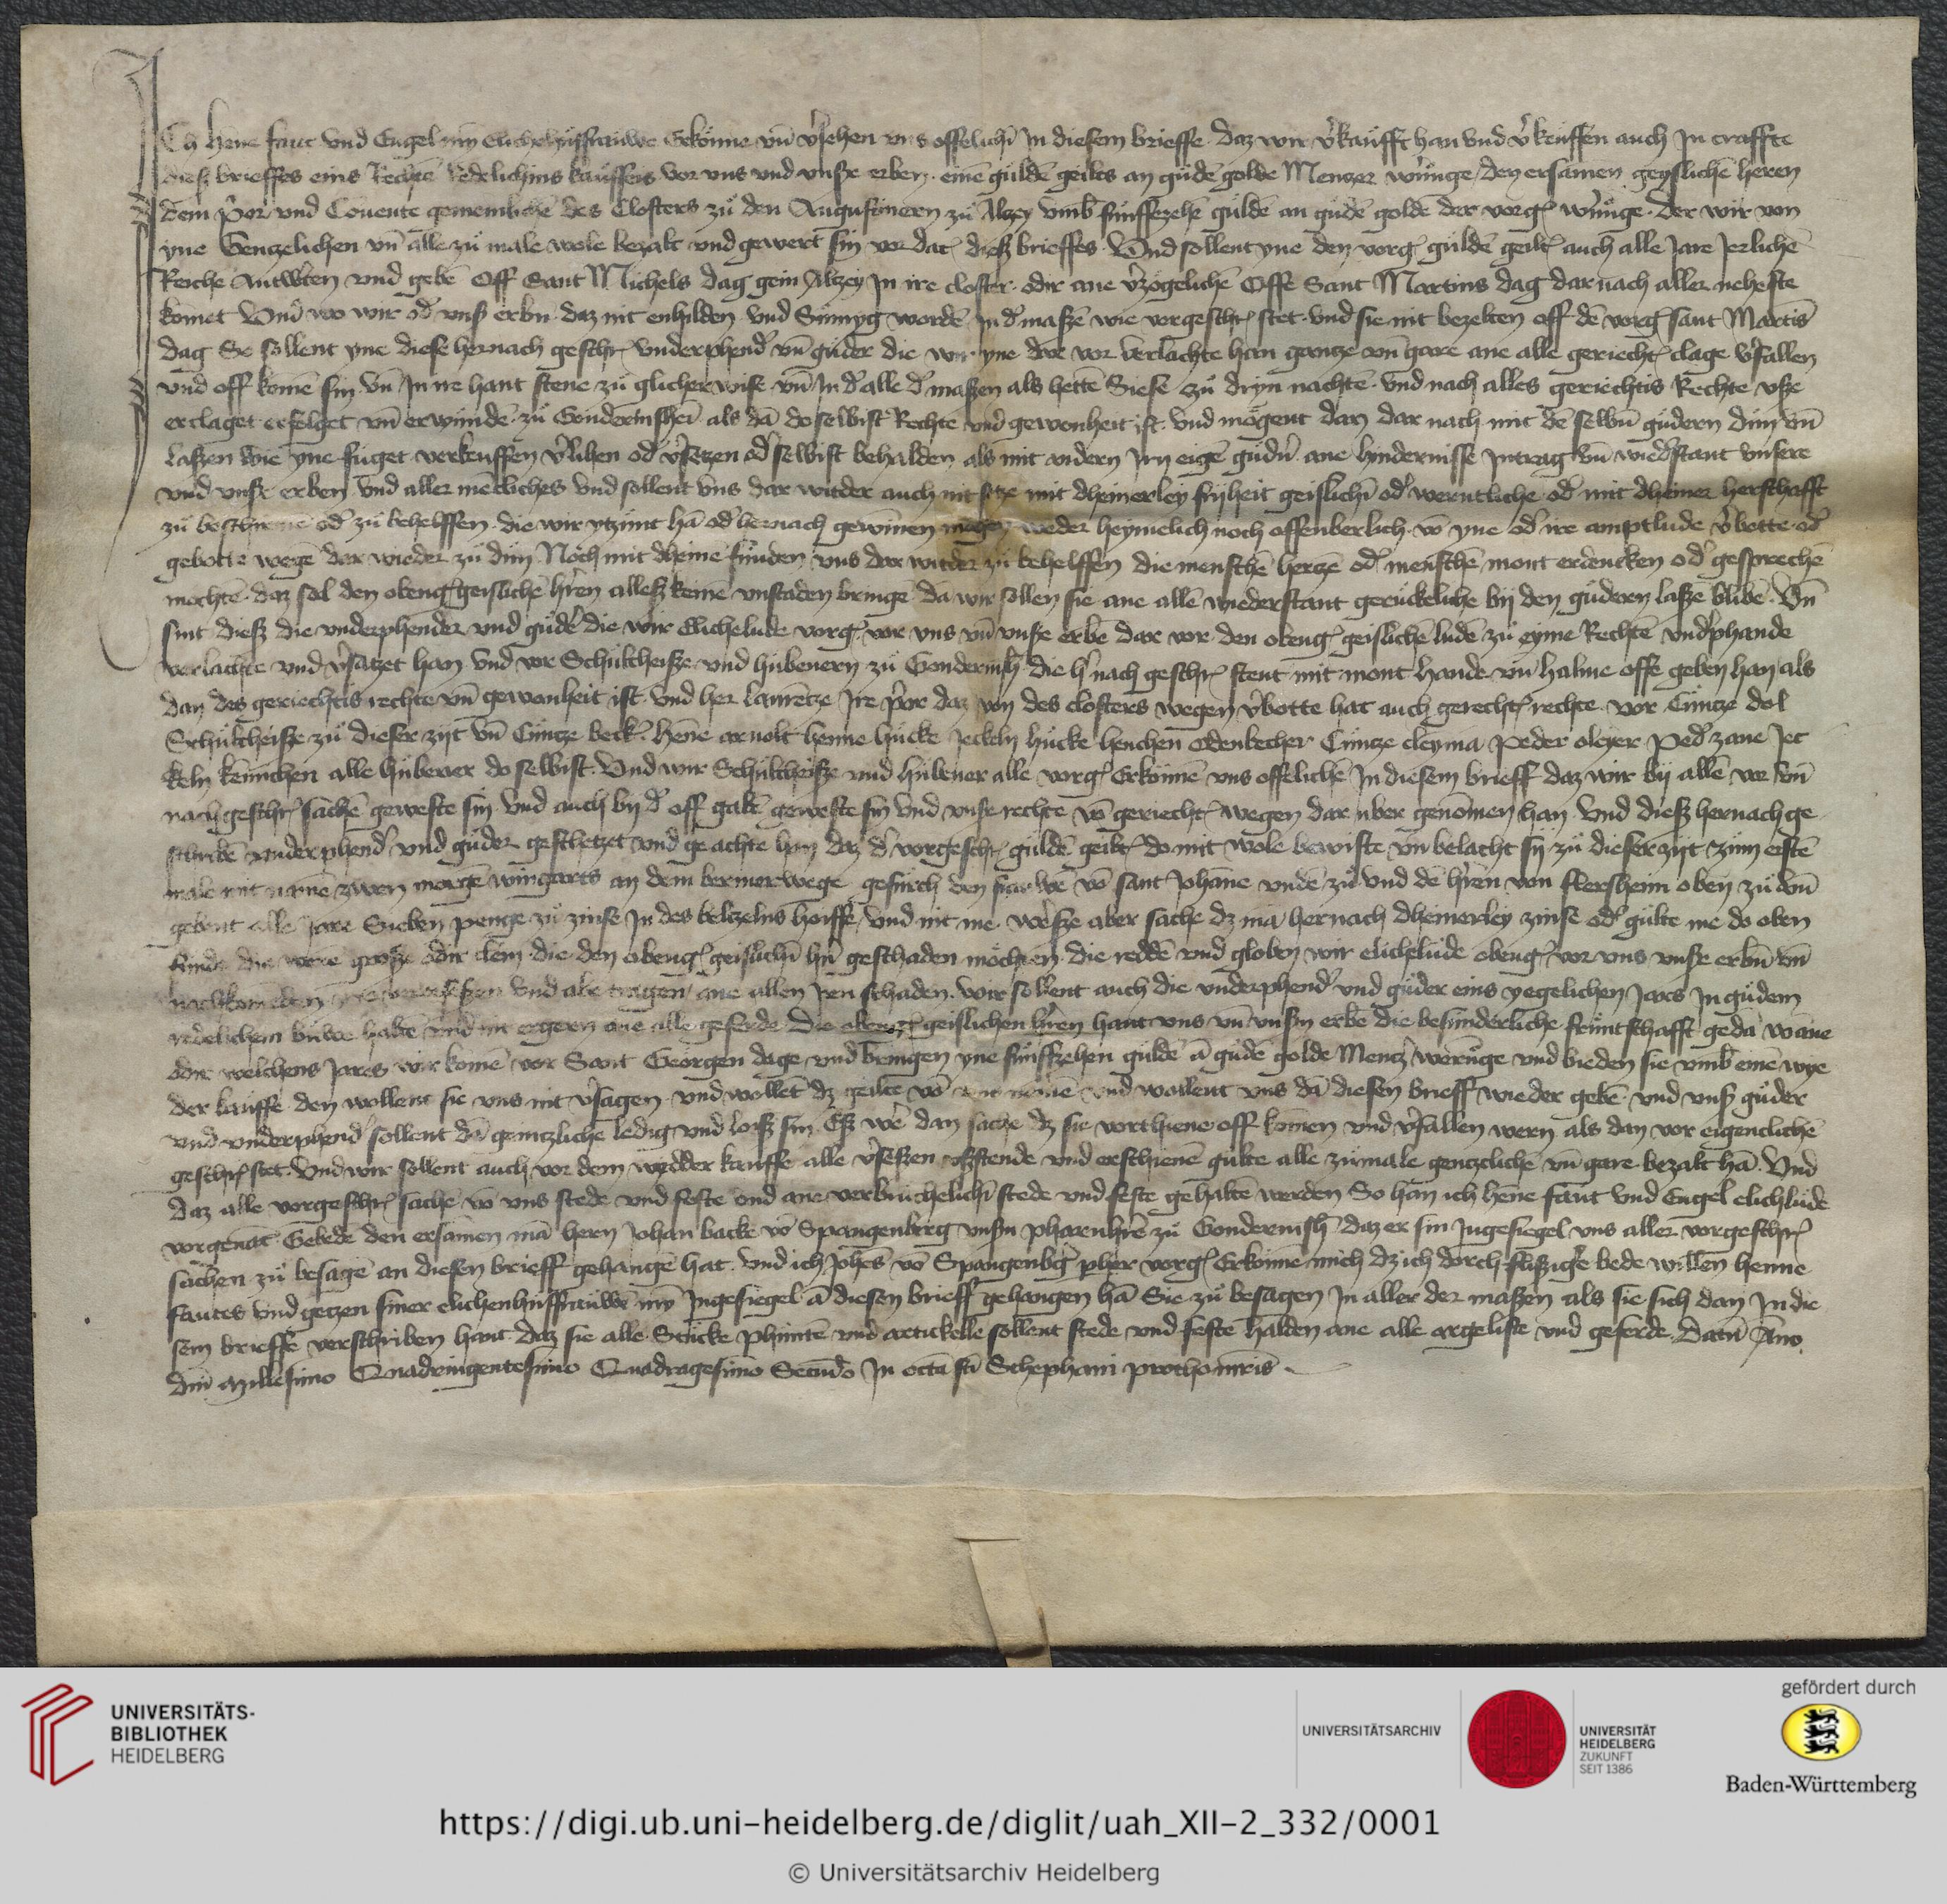 Ich Henne faut vnd Engel myn Elichehußfrauwe Erkenne vn̄ v'iehen vns offelichn̄ In diesem brieffe daz wir v'kaufft han vnd v'keuffen auch In craffte
dieß brieffes eins Rechtē Redelichins kauffes vor vns vnd vnße erben einē guldē geltes an gudē golde Menczer werūge den ersamen geyslichē heren
dem p'or vnd Couente gemeinlichē des Closters zu den Augustinern zu Alczey vmb funffczehē guldē an gudē golde der vorg' werūge der wir von
yne Genczelichen vn̄ alle zu male wole bezalt vnd gewert sin vor dat' dieß brieffes Vnd sollent yne den vorg' guldē gelt' auch alle Jare Jerlichē
Reiche Antwtēn vnd gebē Off Sant Michels dag gein Alczey In ire closter oder ane v'zogelichē Offe Sant Martins dag dar nach aller neheste
komet Vnd wo wir od' vnß erbn̄ daz nit enhilden vnd Sumyg wordē In d' maßē wie vorgeschr' stet vnd sie nit bezelten off dē vorg' sant Martīs
dag So sollent yne diese hernach geschr' vnderphend' vn̄ guder die wir yne dar vor verlachte han gancze vn̄ gare ane alle geriecht' clage v'fallen
vnd off komē sin vn̄ In ire hant stene zu glicher wise vn̄ In d' alle d' maßen als hettē Siese zu dryn nachtē vnd nach alles geriechtis Rechte vße
erclaget erfolget vn̄ erwunnde zu Gonderinsheī als dā do selbist Rechte vnd gewonheit ist vnd mogent dan dar nach mit dē selbn̄ gudern dun vn̄
laßen wie yne fuget verkeuffen v'lihen od' v'seczen od' selbist behalden als mit andern Irn eigē gudn̄ ane hindernisse Intrag vn̄ wied'stant vnsere
vnd vnße erben vnd aller meeliches vnd sollent vns dar widder auch nit mit dheinerley frijheit geislichn̄ od' werntliche od' mit dheiner herschafft
zu beschirme od' zu behelffen die wir yczunt hā od' hernach gewinnen mogen weder heymelich noch offenberlich vō yne od' ire amptlude v'botte od'
gebotte wegē dar wieder zu dun Noch mit dheinē funden vns dar widder zu behelffen die menschē herczē od' menschē mont erdencken od' gesprechē
mochtē daz sol den obeng' geislichē hern alleß keinē vnstaden bringē da wir sollen sie ane allē wiederstant geruckeliche bij den gudern laße blibē Vn̄
sint dieß die vnderphender vnd gud' die wir Elichelude vorg' vor vns vn̄ vnße erbē dar vor den obeng' geislichē ludē zu eyme Rechtē vnd'phande
verlachte vnd v'saczet han vnd vor Schultheisze vnd hubenern zu Gonderinsh' die h'nach geschr' stent mit mont hande vn̄ halme offe geben han als
dan des geriechtis rechte vn̄ gewonheit ist vnd her laurencze Ire p'or daz von des closters wegen v'botte hat auch gerecht' rechte vor Cuncze dol
Schultheisze zu dieser zijt vn̄ Cuncze beck' henne arnolt henne hucke Jeckeln hucke henchen Odenbecher Cuncze cleyma peder oleyer ped' zane Jec
keln kennichen alle hubener do selbist Vnd wir Schultheisze vnd hubener alle vorg' Erkennē vns offelichē In diesem brieff daz wir bij allē vor vn̄
nachgeschr' sachē geweste sin vnd auch bij d' off gabē geweste sin vnd vnße rechte vō geriecht' wegen dar vber genōmen han Vnd dieß hernach ge
schribē vnderphend' vnd guder gescheczet vnd geachte han daz d' vorgeschr' guldē gelt' do mit wole bewiste vn̄ belacht sij zu dieser zijt zum erstē
male mit namē zwen morgē wingarts an dem bermerwege gefurch den vō sant Johāne vndē zu vnd dē hren von flersheim oben zu don
gebent alle Jare Sieben penge zu zinse In des helczelns hoiffe vnd nit me were aber sache dz mā hernach dheinerley zinse od' gulte me do oben
funde die were große oder clein die den obeng' geislichn̄ hn̄ geschaden mochten die reddē vnd globen wir elichelude obeng' vor vns vnße erbn̄ vn̄
vnd abe tragen ane allen Iren schaden wir sollent auch die vnderphend' vnd guder eins yegelichen Jars In gudem
redelichem buwe haltē vnd nit ergern ane alle geferde Die obeng' geislichen hren hant vns vn̄ vnßn erbē die besunderliche fruntschafft gedā wāne
oder welchens Jars wir komē vor Sant Georgen dage vnd bringen yne funffzehen guldē ā gudē golde Mencz' werunge vnd bieden sie vmb einē wye
der kauffe den wollent sie vns nit v'sagen vnd wollet dz gelte vō nemē vnd wollent vns dā diesen brieff wieder gebē vnd vnß guder
vnd vnderphend' sollent dā genczlichē ledig vnd loiß sin Eß we' dan sache dz sie vorthiene off komen vnd v'fallen wern als dan vor eigentlichē
geschr' stet Vnd wir sollent auch vor dem wyedder kauffe alle v'seßen vßstende vnd erschienē gulte alle zumale genczelichē vn̄ gare bezalt hā Vnd
daz alle vorgeschr' sache vō vns stede vnd feste vnd ane verbruchelichn̄ stede vnd feste gehaltē werden So han ich henne faut vnd Engel elichlude
vorgenāt Gebedē den ersamen mā hern Johan backe vō Spangenberg vnßn pharrhren zu Gonderinsh' daz er sin Ingesiegel vns aller vorgeschr'
sachen zu besagē an diesen brieff gehangē hat vnd ich Johēs vō Spangenbg' pher vorg' Erkenne mich dz ich dorch flißige bede willen henne
fautes vnd geczen siner elichenhußfrauwē myn Ingesiegel ā diesen brieff gehangen hā Sie zu besagen In aller der maßen als sie sich dan In die
sem brieffe verschriben hant daz sie alle Stucke phunte vnd artickelle sollent stede vnd feste halden ane alle argeliste vnd geferde Datū Anno
dnī Millesimo Quadringentesimo Quadragesimo Secūdo In octa scī Stephani prothomris
UNIVERSITÄTS-
BIBLIOTHEK
HEIDELBERG
UNIVERSITÄTSARCHIV
UNIVERSITÄT
HEIDELBERG
ZUKUNFT
SEIT 1386
gefördert durch
Baden-Württemberg
https://digi.ub.uni-heidelberg.de/diglit/uah_XII-2_332/0001
© Universitätsarchiv Heidelberg